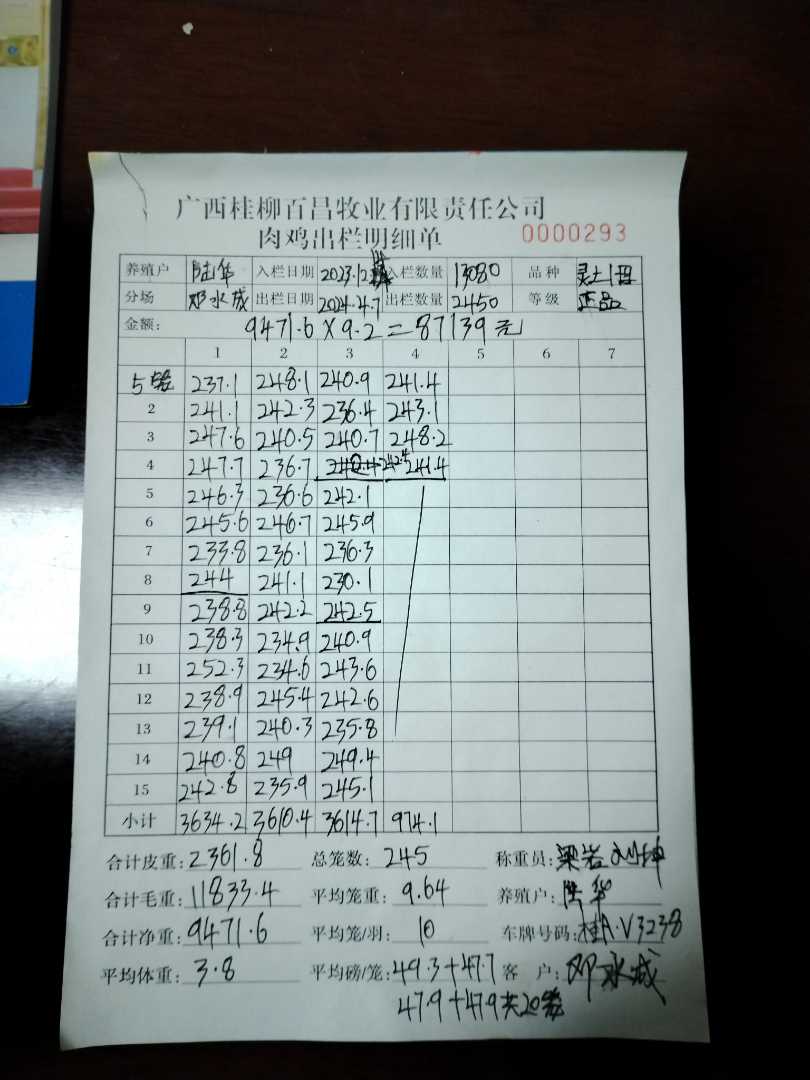 广西桂柳百昌牧业有限责任公司
肉鸡出栏明细单 0000293
养殖户 陆华 入栏日期 2023.12 入栏数量 13080 品种 灵土1号
分场 邓水成 出栏日期 2024.4.7 出栏数量 2450 等级 正品
金额: 9471.6×9.2=87139元
1 2 3 4 5 6 7
5笼 237.1 248.1 240.9 241.4
2 241.1 242.3 236.4 243.1
3 247.6 240.5 240.7 248.2
4 247.7 236.7 242.4 241.4
5 246.3 236.6 242.1
6 245.6 246.7 245.9
7 233.8 236.1 236.3
8 244 241.1 230.1
9 238.8 242.2 242.5
10 238.3 234.9 240.9
11 252.3 234.6 243.6
12 238.9 245.4 242.6
13 239.1 240.3 235.8
14 240.8 249 249.4
15 242.8 235.9 245.1
小计 3634.2 3610.4 3614.7 974.1
合计皮重: 2361.8 总笼数: 245 称重员:
合计毛重: 11833.4 平均笼重: 9.64 养殖户: 陆华
合计净重: 9471.6 平均笼/羽: 10 车牌号码: 桂A·V3238
平均体重: 3.8 平均磅/笼: 49.3+47.7 客户: 邓水成
47.9+47.9共20笼